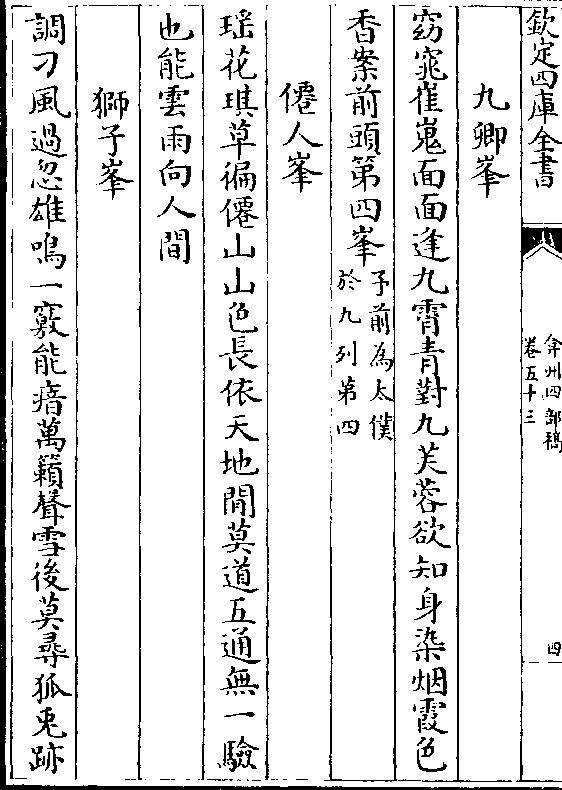 欽定四庫全書
弇州四部稿
卷五十三
四
九卿峯
窈窕崔嵬面面逢九霄青對九芙蓉欲知身染烟霞色
香案前頭第四峯予前為太僕
於九列第四
僊人峯
瑶花琪草徧僊山山色長依天地間莫道五通無一驗
也能雲雨向人間
獅子峯
調刁風過忽雄鳴一竅能瘖萬籟聲雪後莫尋狐兎跡